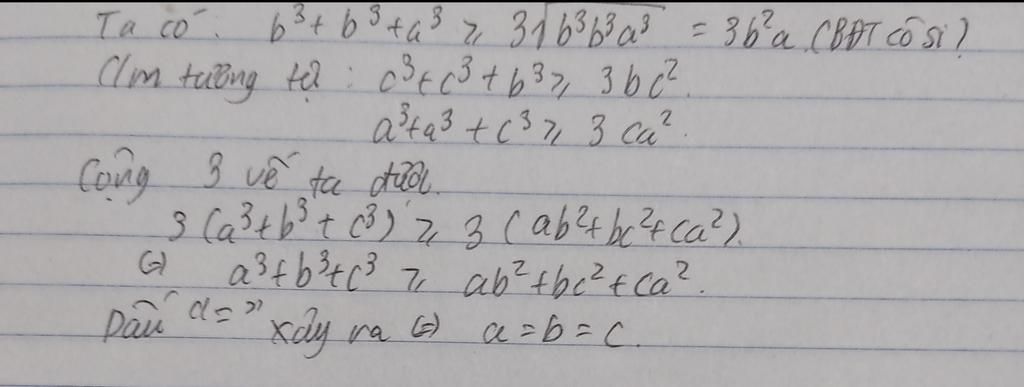 Ta có: b³ + b³ + a³ ≥ 3√b³b³a³ = 3b²a (BĐT cô si)
C/m tương tự: c³ + c³ + b³ ≥ 3bc².
a³ + a³ + c³ ≥ 3ca².
Cộng 3 vế ta được.
3(a³ + b³ + c³) ≥ 3(ab² + bc² + ca²).
(=) a³ + b³ + c³ ≥ ab² + bc² + ca².
Dấu "=" xảy ra (=) a = b = c.